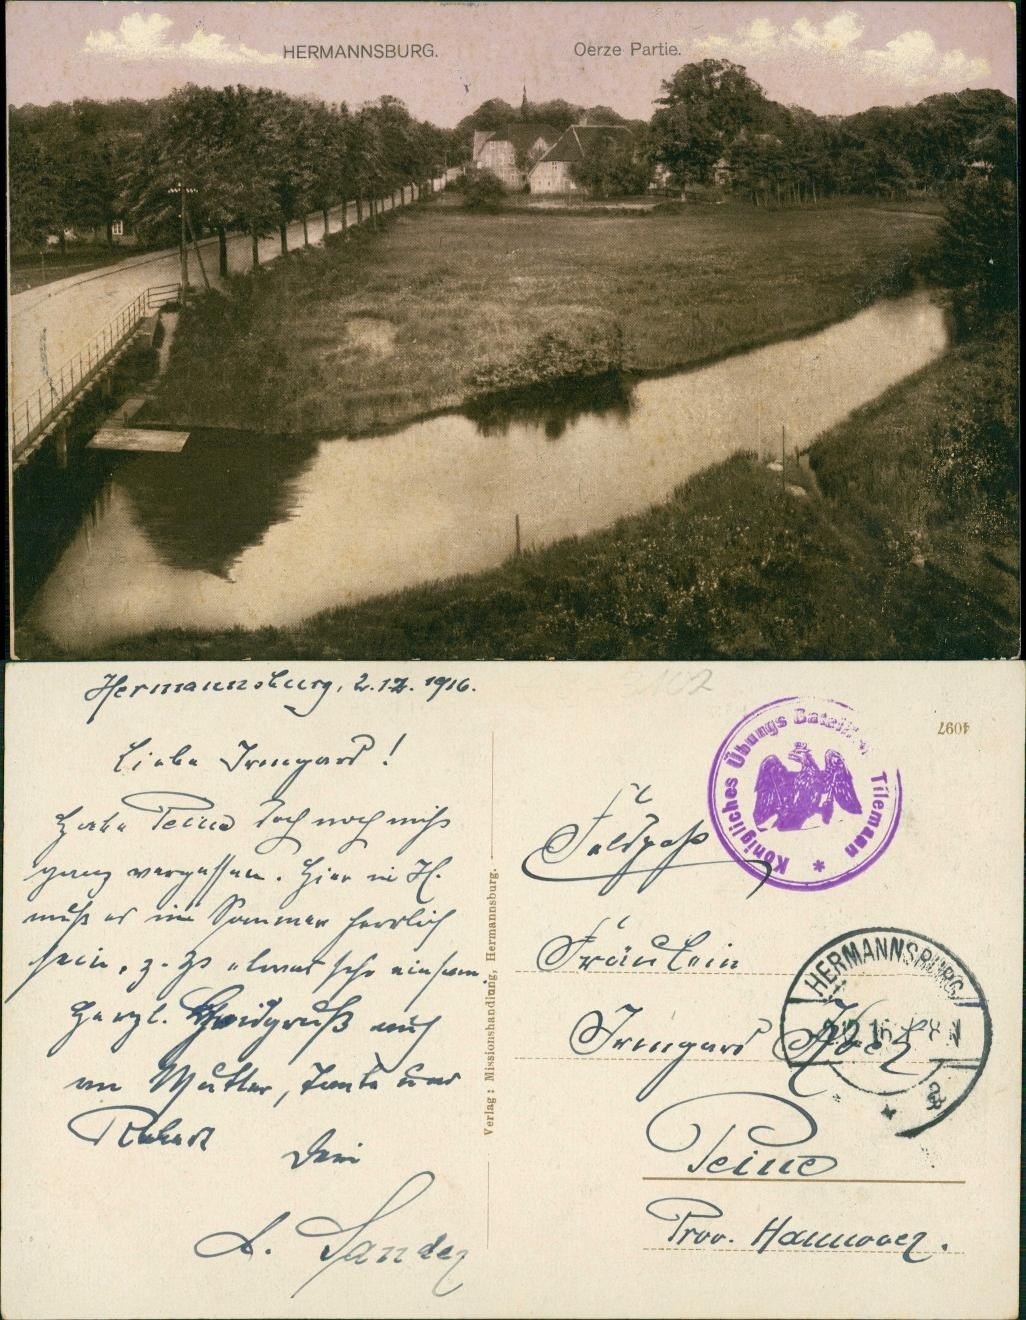 HERMANNSBURG.
Oerze Partie.
Hermannsburg, 2.12.1916.
Liebe Irmgard!
Habe Peine doch noch nicht
ganz vergessen. Hier in H.
muß es im Sommer herrlich
sein, z. Zt etwas sehr einsam
Herzl. gruß auch
an Mutter, Tante und
Robert
Dein
A. Sander
Verlag: Missionshandlung, Hermannsburg.
4097
Königliches Übungs Bataillon Tilemann
Feldpost
Fräulein
Irmgard
Peine
Prov. Hannover.
HERMANNSBURG
2.12.16
a